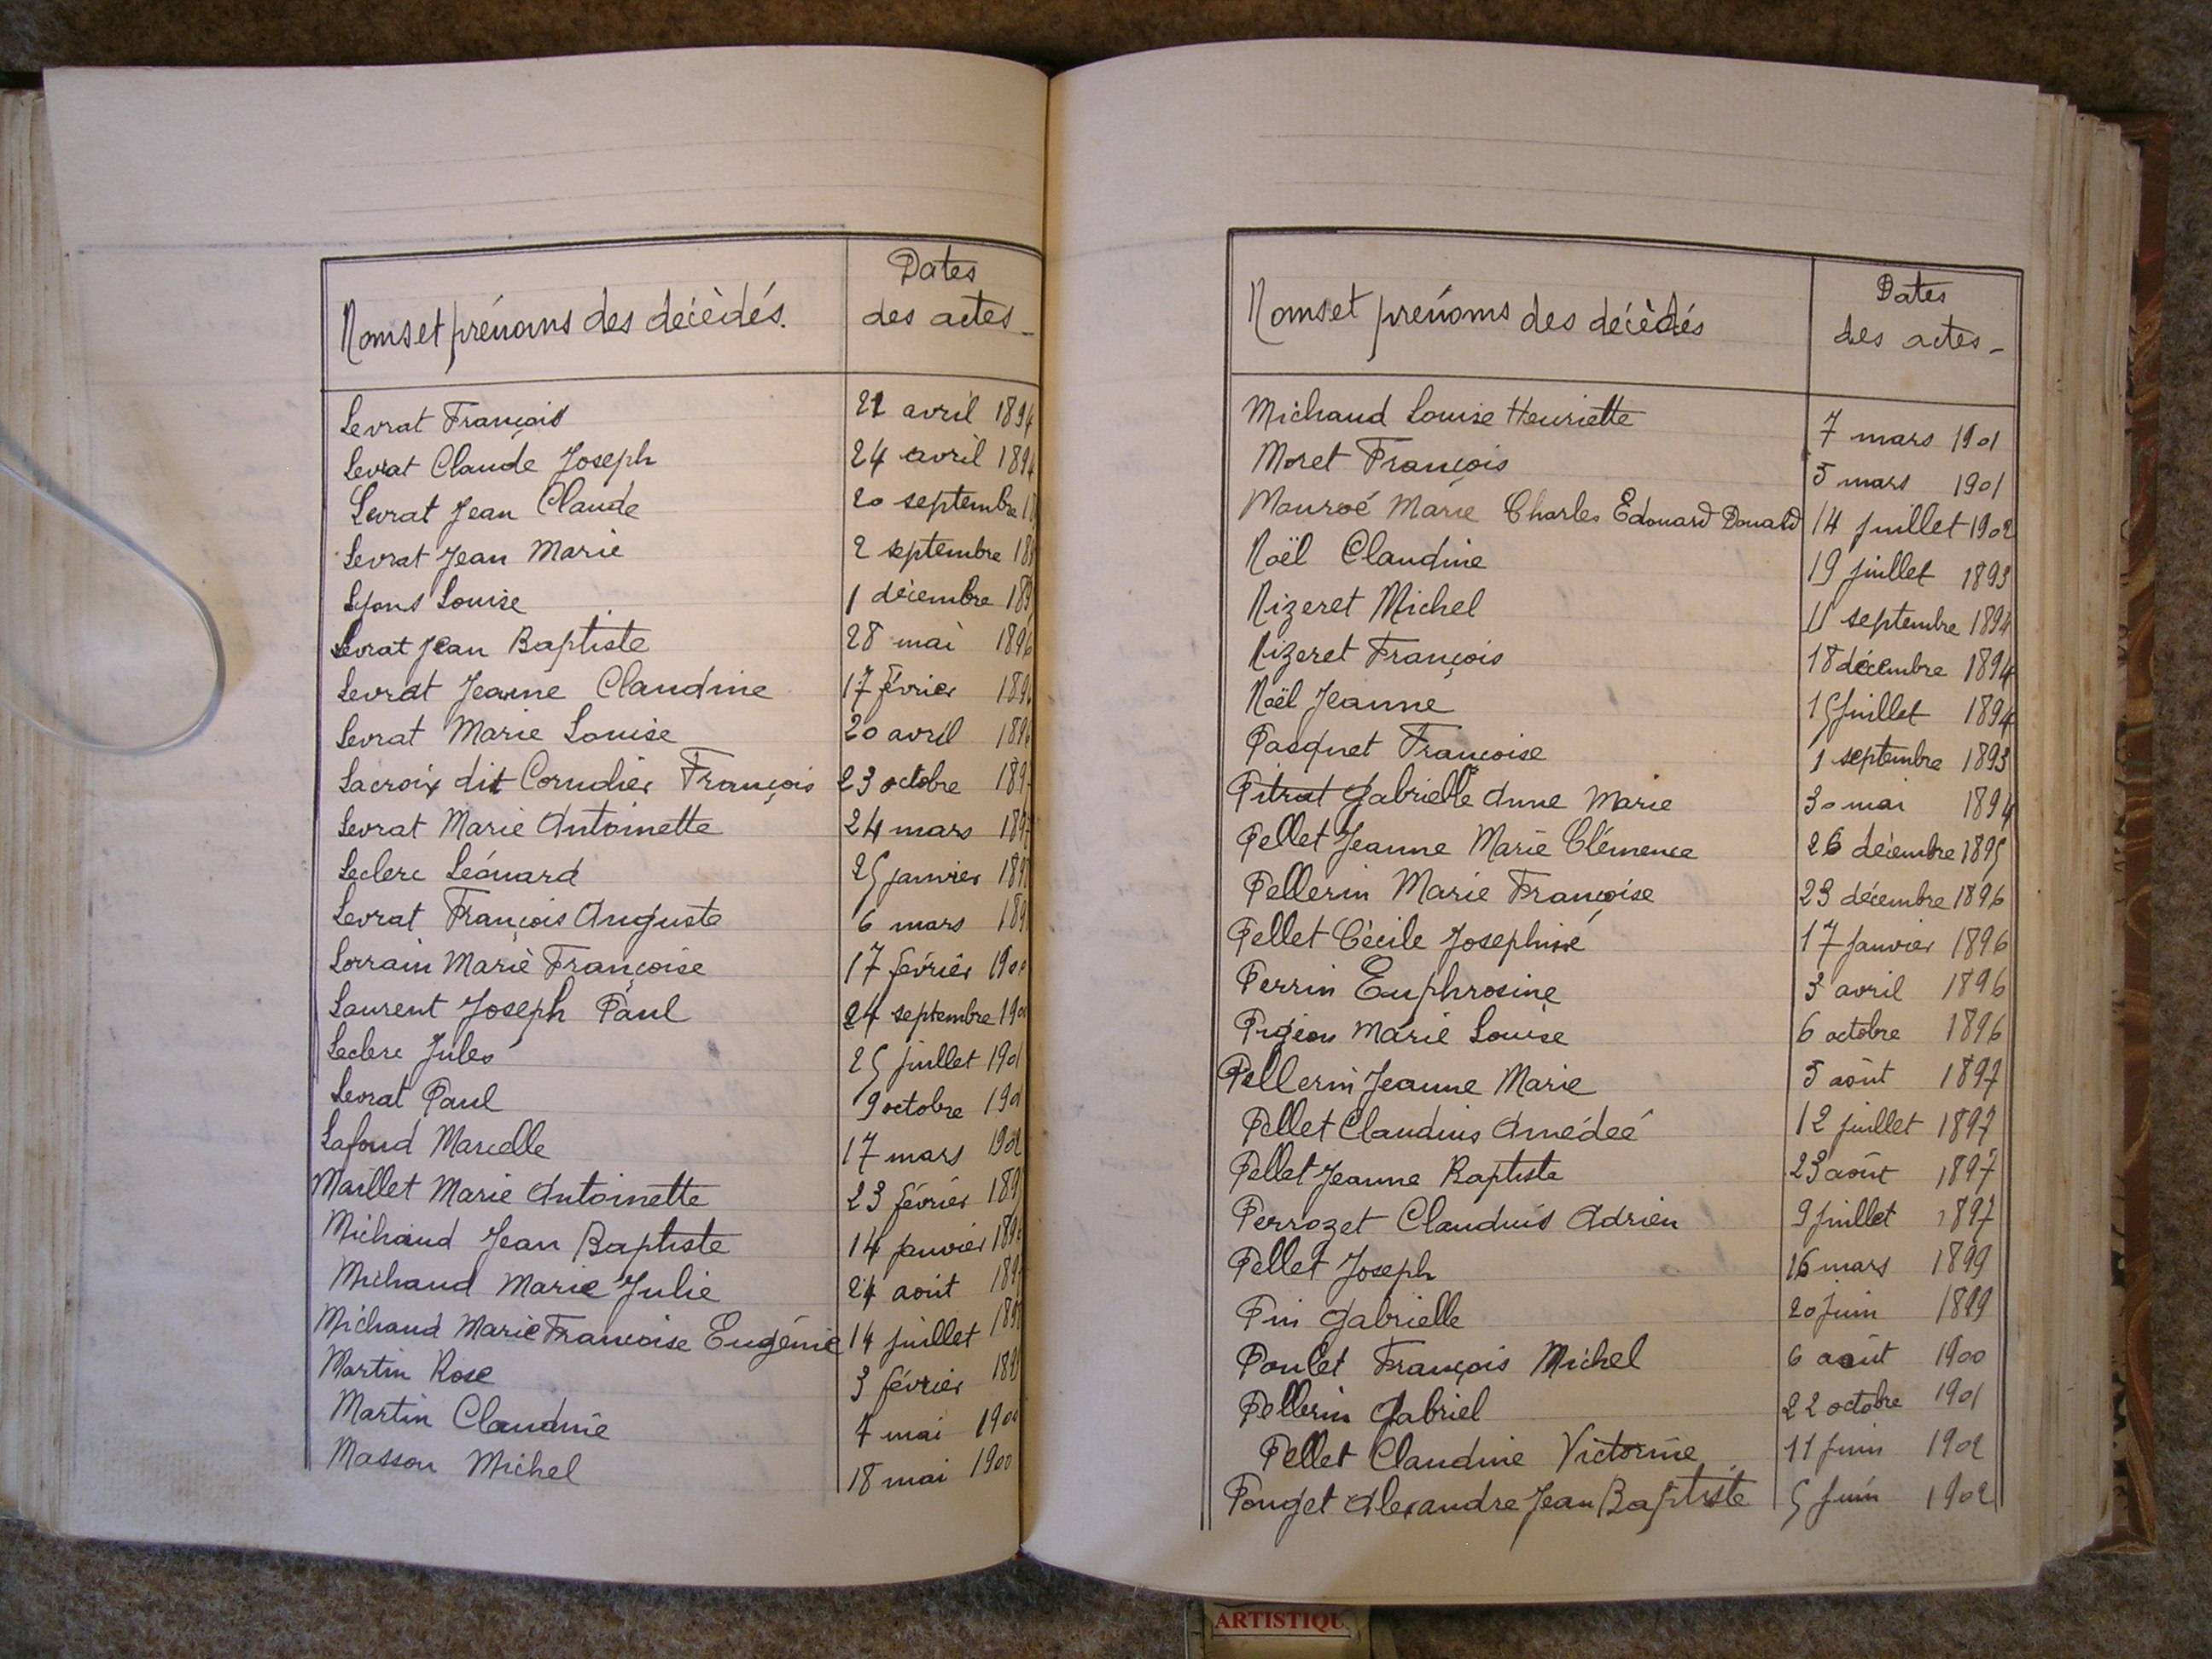 Noms et prénoms des décèdés.
Dates
des actes
Levrat François 21 avril 1894
Levrat Claude Joseph 24 avril 1894
Levrat Jean Claude 20 septembre
Levrat Jean Marie 2 septembre
Lyons Louise 1 décembre
Levrat Jean Baptiste 28 mai 1896
Levrat Jeanne Claudine 17 février
Levrat Marie Louise 20 avril
Lacroix dit Corndier François 23 octobre
Levrat Marie Antoinette 24 mars
Leclerc Léonard 25 janvier
Levrat François Auguste 6 mars
Lorrain Marie Françoise 17 février 1900
Laurent Joseph Paul 24 septembre
Leclerc Jules 25 juillet 1901
Levrat Paul 9 octobre 1901
Lafond Marcelle 17 mars 1902
Maillet Marie Antoinette 23 février
Michaud Jean Baptiste 14 janvier
Michaud Marie Julie 24 août
Michaud Marie Françoise Eugénie 14 juillet
Martin Rose 3 février
Martin Claudine 7 mai 1900
Masson Michel 18 mai 1900
Noms et prénoms des décèdés
Dates
des actes
Michaud Louise Henriette 7 mars 1901
Moret François 5 mars 1901
Monroé Marie Charles Edouard Donald 14 juillet 1902
Noël Claudine 19 juillet 1893
Nizeret Michel 11 septembre 1894
Nizeret François 18 décembre 1894
Noël Jeanne 15 juillet 1894
Pasquet Françoise 1 septembre 1893
Pitrat Gabrielle Anne Marie 30 mai 1894
Pellet Jeanne Marie Clémence 26 décembre 1895
Pellerin Marie Françoise 23 décembre 1896
Pellet Cécile Josephine 17 janvier 1896
Perrin Euphrosine 3 avril 1896
Pigeon Marie Louise 6 octobre 1896
Pellerin Jeanne Marie 5 août 1897
Pellet Claudius Amédeé 12 juillet 1897
Pellet Jeanne Baptiste 23 août 1897
Perrozet Claudius Adrien 9 juillet 1897
Pellet Joseph 16 mars 1899
Pin Gabrielle 20 juin 1899
Poulet François Michel 6 août 1900
Pellerin Gabriel 22 octobre 1901
Pellet Claudine Victorine 11 juin 1902
Pouget Alexandre Jean Baptiste 5 juin 1902
ARTISTIQU